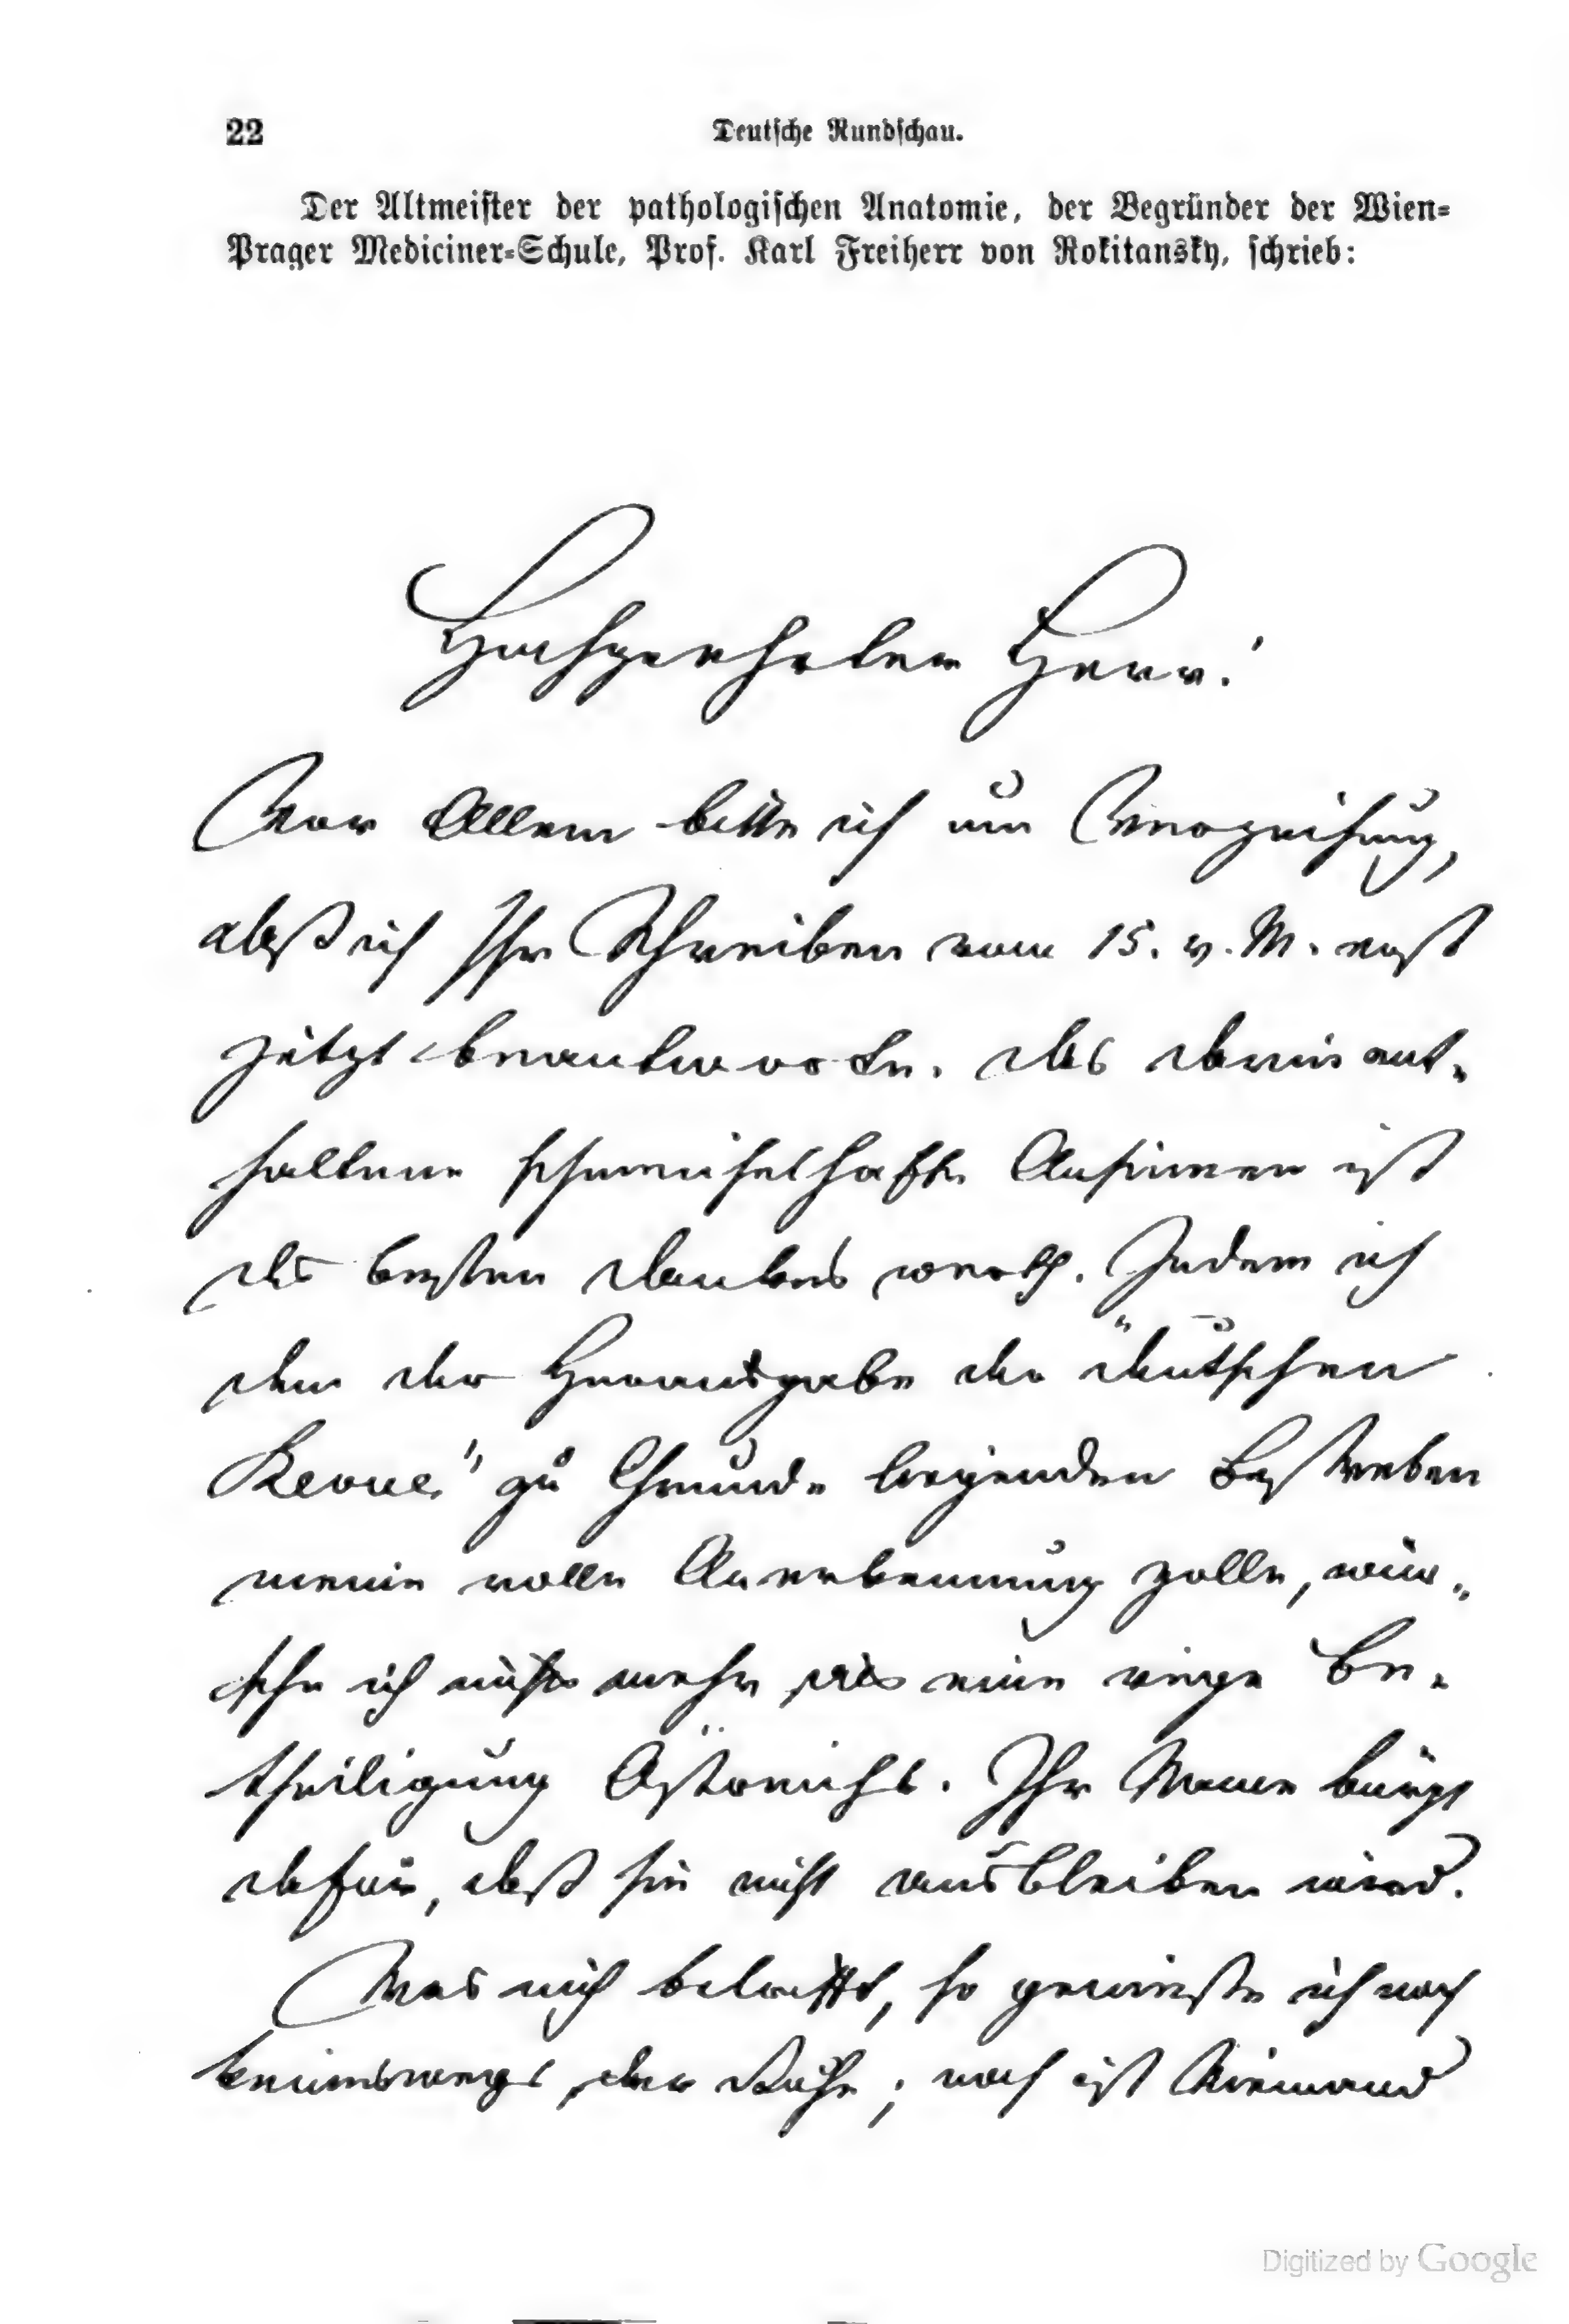 22
Deutsche Rundschau.
Der Altmeister der pathologischen Anatomie, der Begründer der Wien-
Prager Mediciner-Schule, Prof. Karl Freiherr von Rokitansky, schrieb:
Hochgeehrter Herr!
Vor Allem bitte ich um Verzeihung,
daß ich Ihr Schreiben vom 15. v. M. erst
jetzt beantworte. Das darin ent-
haltene schmeichelhafte Ansinnen ist
des besten Dankes werth. Indem ich
dem der Herausgabe der "deutschen
Revue" zu Grunde liegenden Bestreben
meine volle Anerkennung zolle, wün-
sche ich nichts mehr als eine rege Be-
theiligung Österreichs. Ihr Name bürgt
dafür, daß sie nicht ausbleiben wird.
Was mich betrifft, so genieße ich noch
keineswegs der Ruhe; noch ist Niemand
Digitized by Google